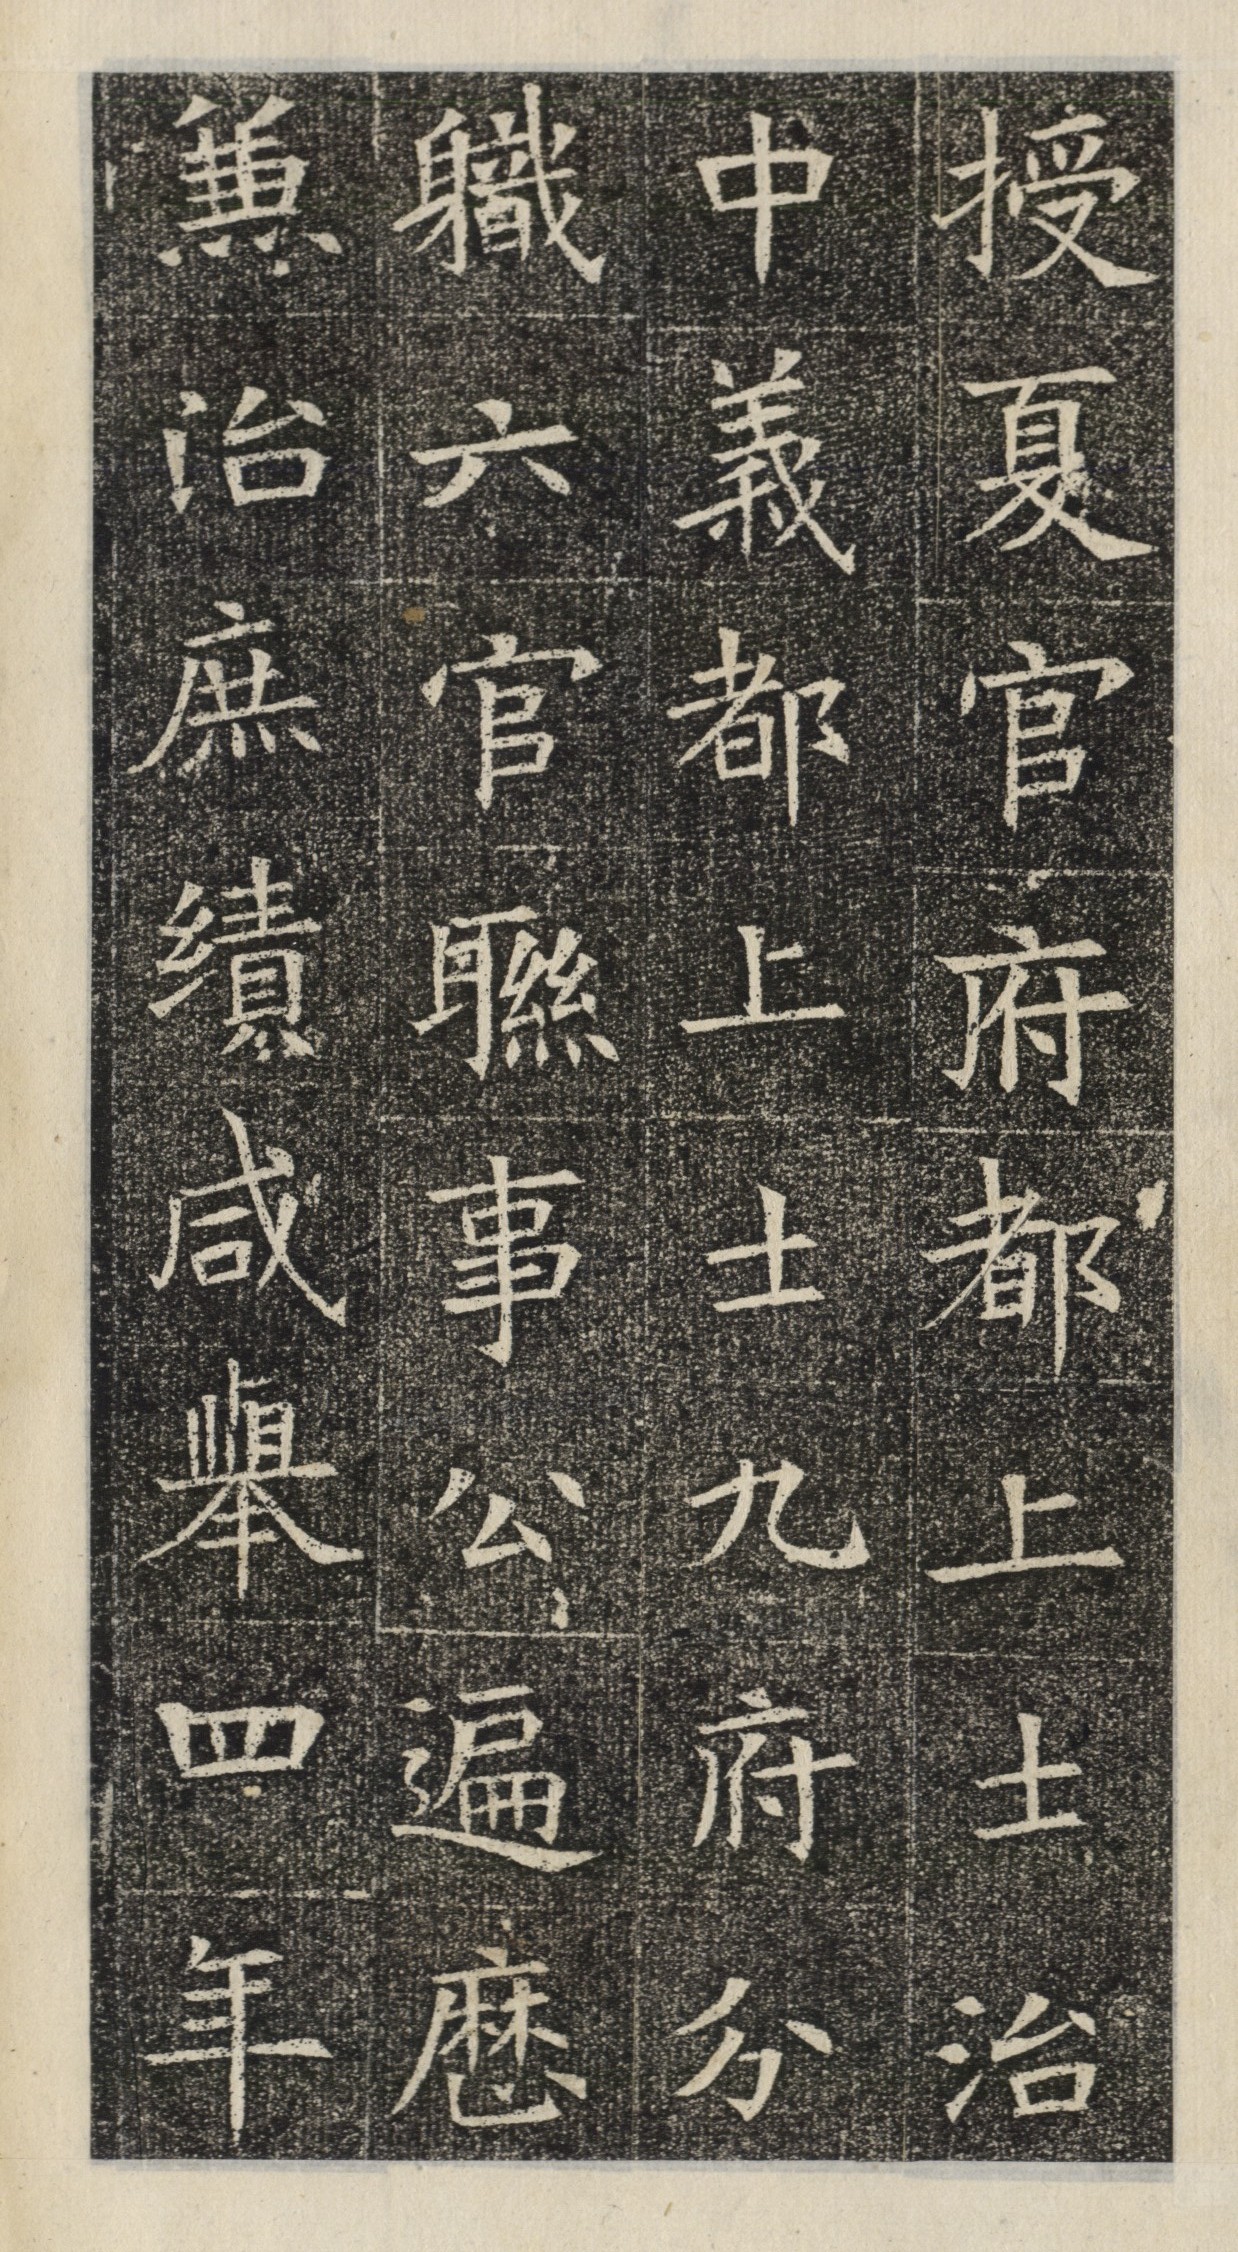 授夏官府都上士治
中義都上士九府分
職六官聯事公遍歷
兼治庶績咸舉四年